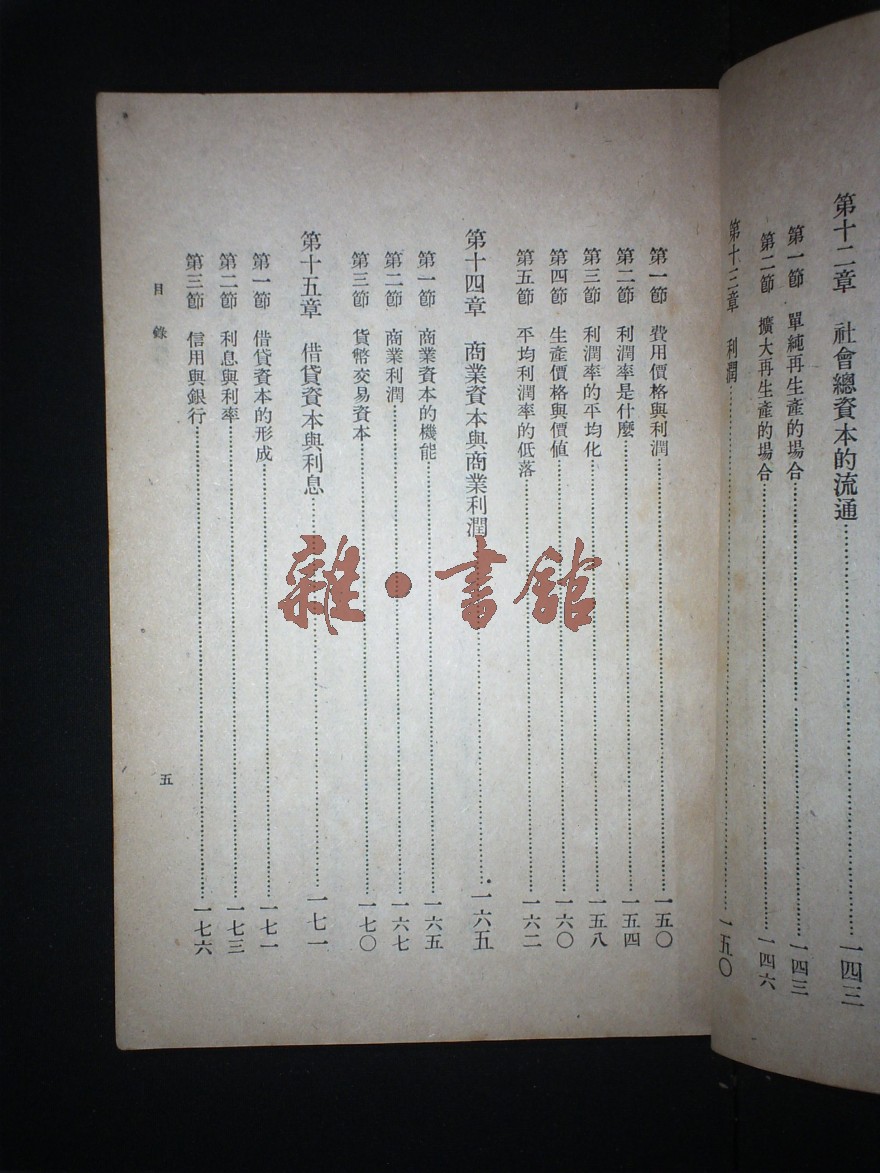 第十二章 社會總資本的流通……一四三
第一節 單純再生產的場合……一四三
第二節 擴大再生產的場合……一四六
第十三章 利潤……一五〇
第一節 費用價格與利潤……一五〇
第二節 利潤率是什麼……一五四
第三節 利潤率的平均化……一五八
第四節 生產價格與價值……一六〇
第五節 平均利潤率的低落……一六二
第十四章 商業資本與商業利潤……一六五
第一節 商業資本的機能……一六五
第二節 商業利潤……一六七
第三節 貨幣交易資本……一七〇
第十五章 借貸資本與利息……一七一
第一節 借貸資本的形成……一七一
第二節 利息與利率……一七三
第三節 信用與銀行……一七六
目錄
五
雜·書館